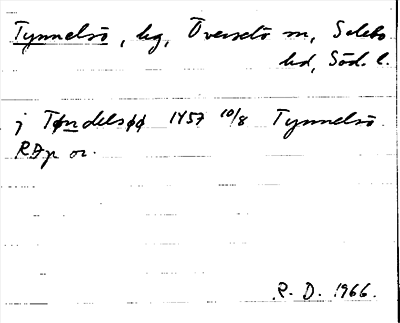 Tynnelsö, hg, Överselö sn, Selebo
hd, Söd. l.
j Tøndelsøø 1457 10/8 Tynnelsö.
RDp or.
R. D. 1966.